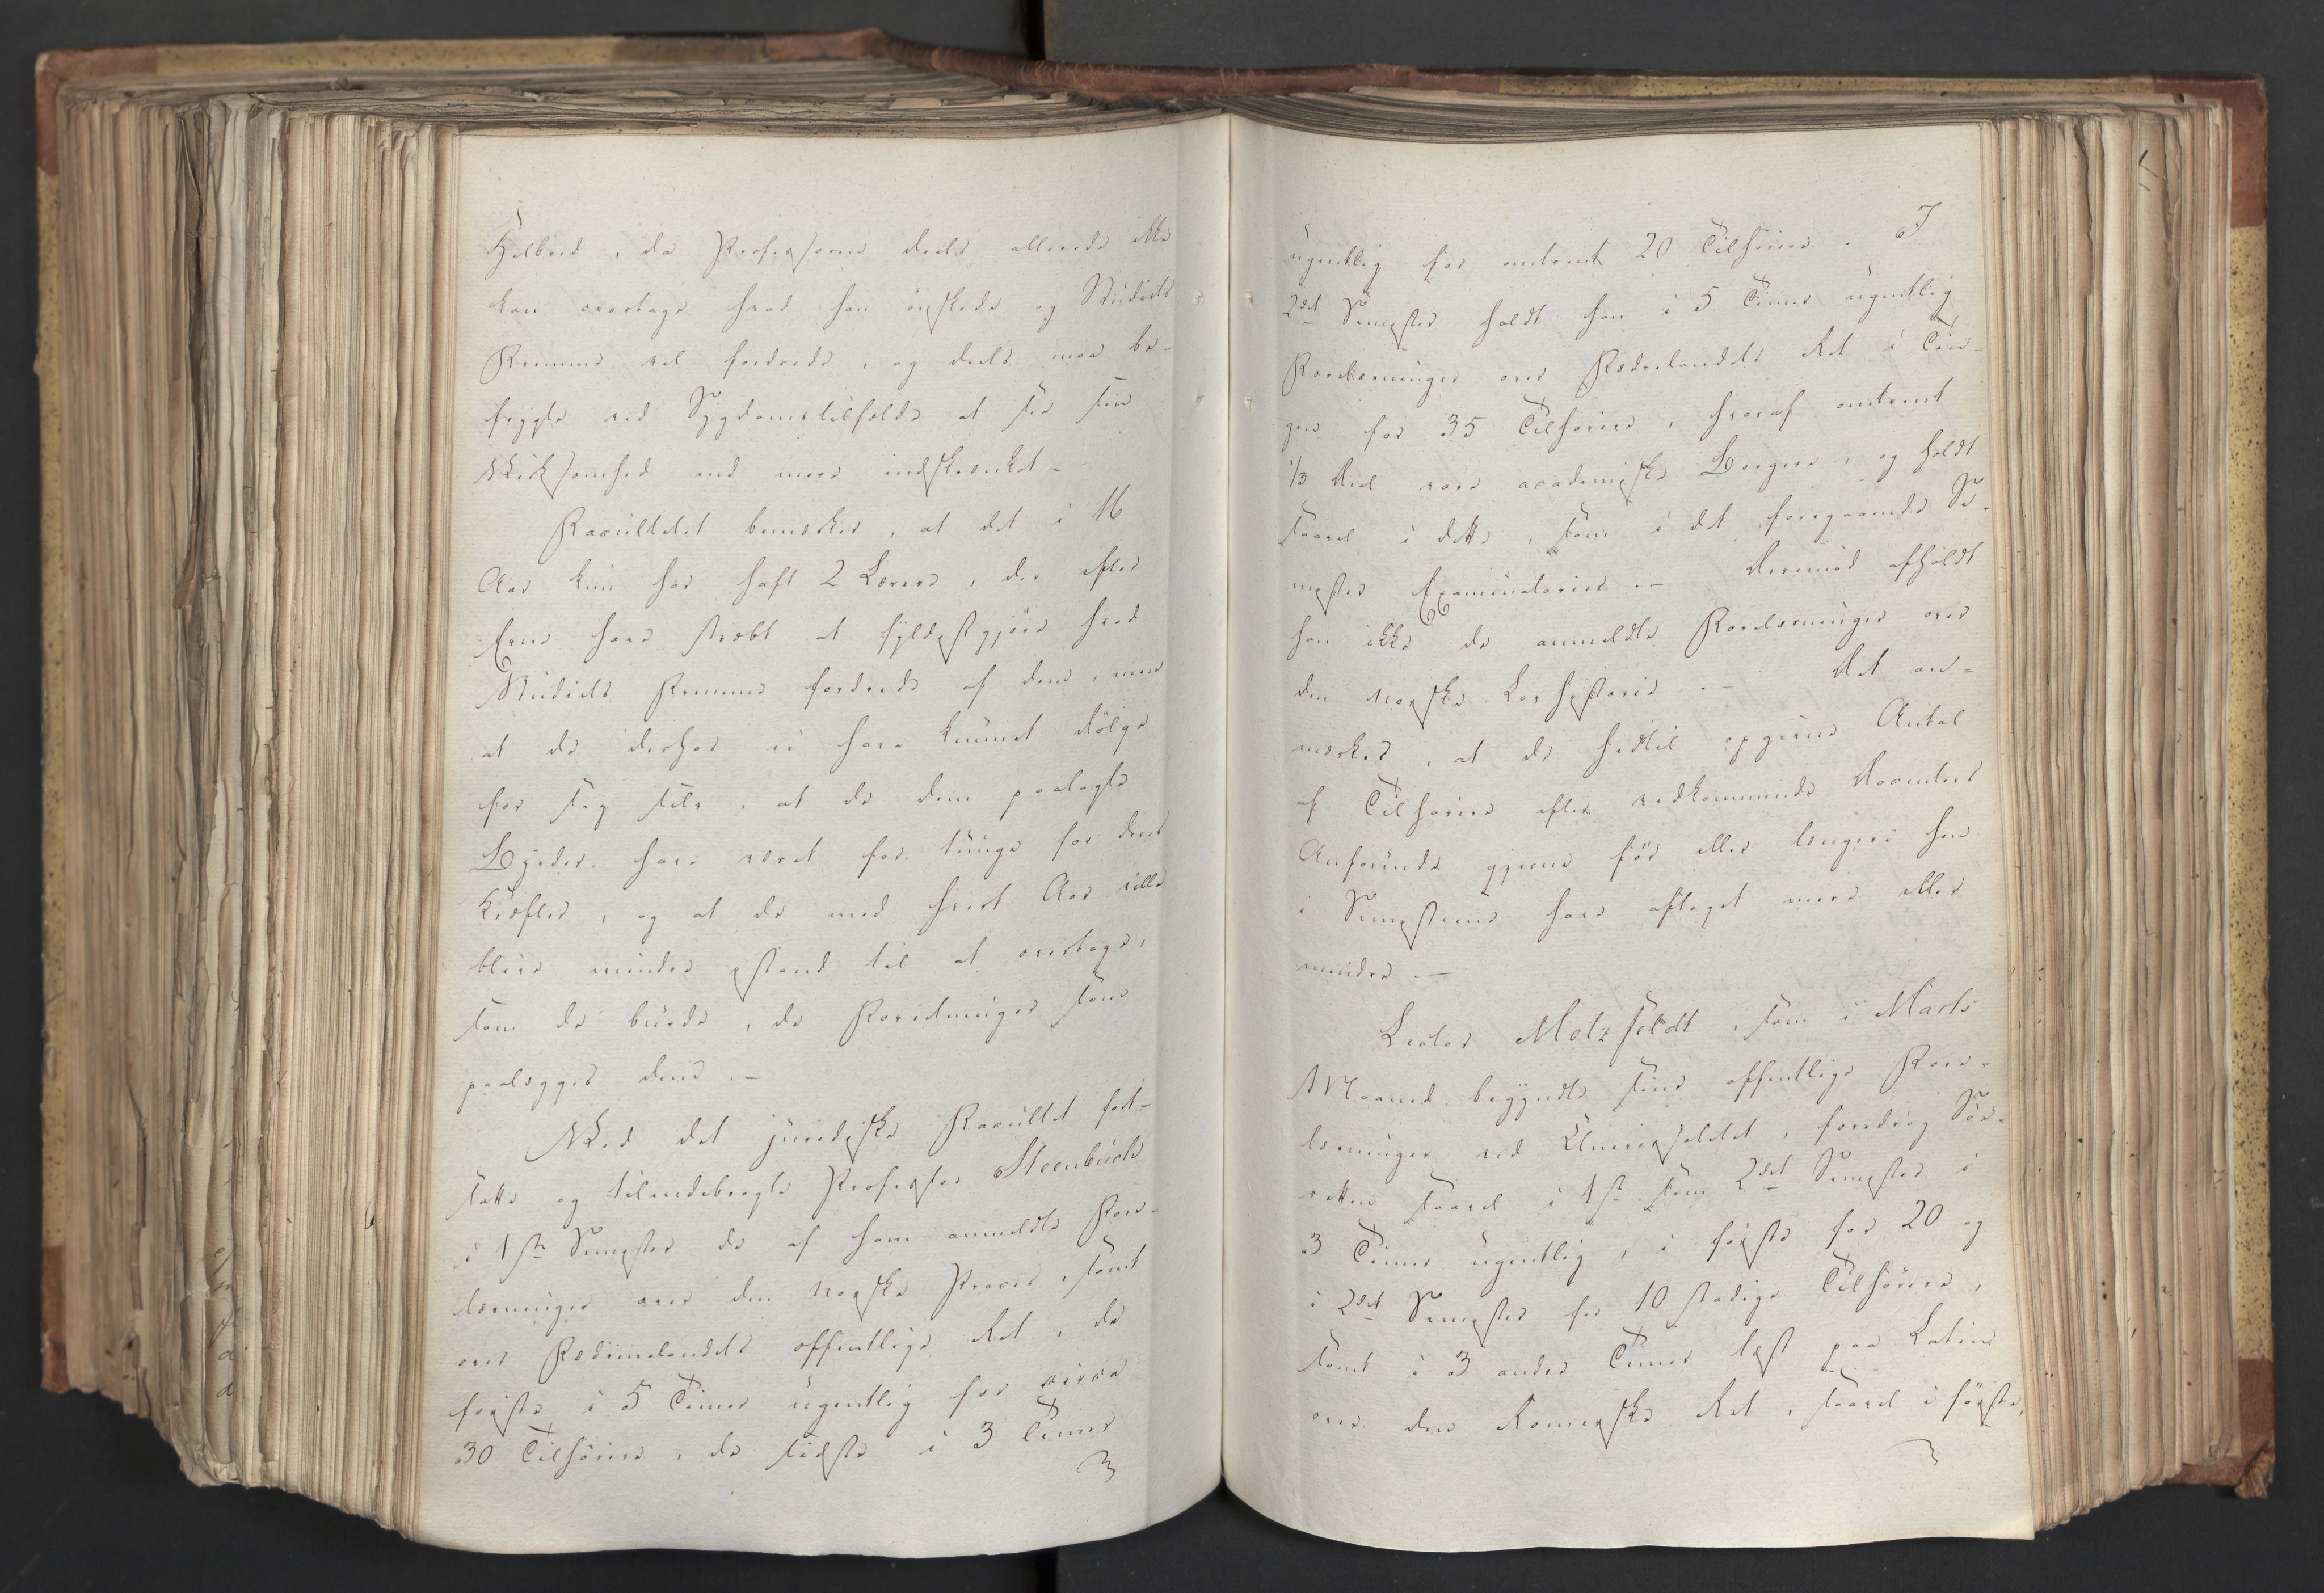 Helbred, da Professorne deels allerede ikke
kan overtage hvad han ønskede og Studiets
Fremme vel fordrede, og deels maa be-
frygte ved Sygdomstilfælde at see sin
Virksomhed end meer indskrænket.
Facultetet bemærker, at det i 16
Aar kun har haft 2 Lærere, der efter
Evne have stræbt at fyldestgjøre hvad
Studiets Fremme fordrede af dem, men
at de derhos ei have kunnet dølge
for sig selv, at de dem paalagte
Byrder have været for tunge for deres
Kræfter, og at de med hvert Aar ville
blive mindre istand til at overtage,
som de burde, de Forretninger som
paalægges dem. —
Ved det juridiske Facultet fort-
satte og tilendebragte Professor Steenbuch
i 1ste Semester de af ham anmeldte Fore-
læsninger over den norske Proces, samt
over Fædrenelandets offentlige Ret, de
første i 5 Timer ugentlig for circa
30 Tilhørere, de sidste i 3 Timer
ugentlig for omtrent 20 Tilhørere. I
2det Semester holdt han i 5 Timer ugentlig
Forelæsninger over Fædrelandets Ret i Tin-
gen for 35 Tilhørere, hvoraf omtrent
1/3 Deel vare academiske Borgere, og holdt
saavel i dette, som i det foregaaende Se-
mester Examinatorier. — Derimod afholdt
han ikke de anmeldte Forelæsninger over
den norske Lovhistorie. — Det an-
mærkes, at de hidtil opgivne Antal
af Tilhørere efter vedkommende Docenters
Anførende gjerne før eller længere hen
i Semesterne have aftaget mere eller
mindre. —
Lector Motzfeldt, som i Marts
Maaned begyndte sine offentlige Fore-
læsninger ved Universitetet, foredrog Søe-
retten saavel i 1ste som 2det Semester i
3 Timer ugentlig, i første for 20 og
i 2det Semester for 10 stadige Tilhørere,
samt i 3 andre Timer læst paa Latin
over den Romerske Ret, saavel i første,